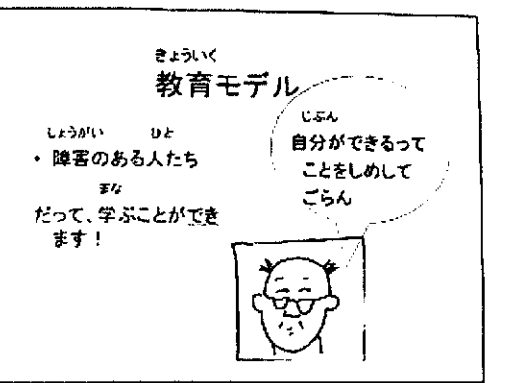 きょういく
教育モデル
しょうがい ひと
・ 障害のある人たち
まな
だって、学ぶことができ
ます！
じぶん
自分ができるって
ことをしめして
ごらん